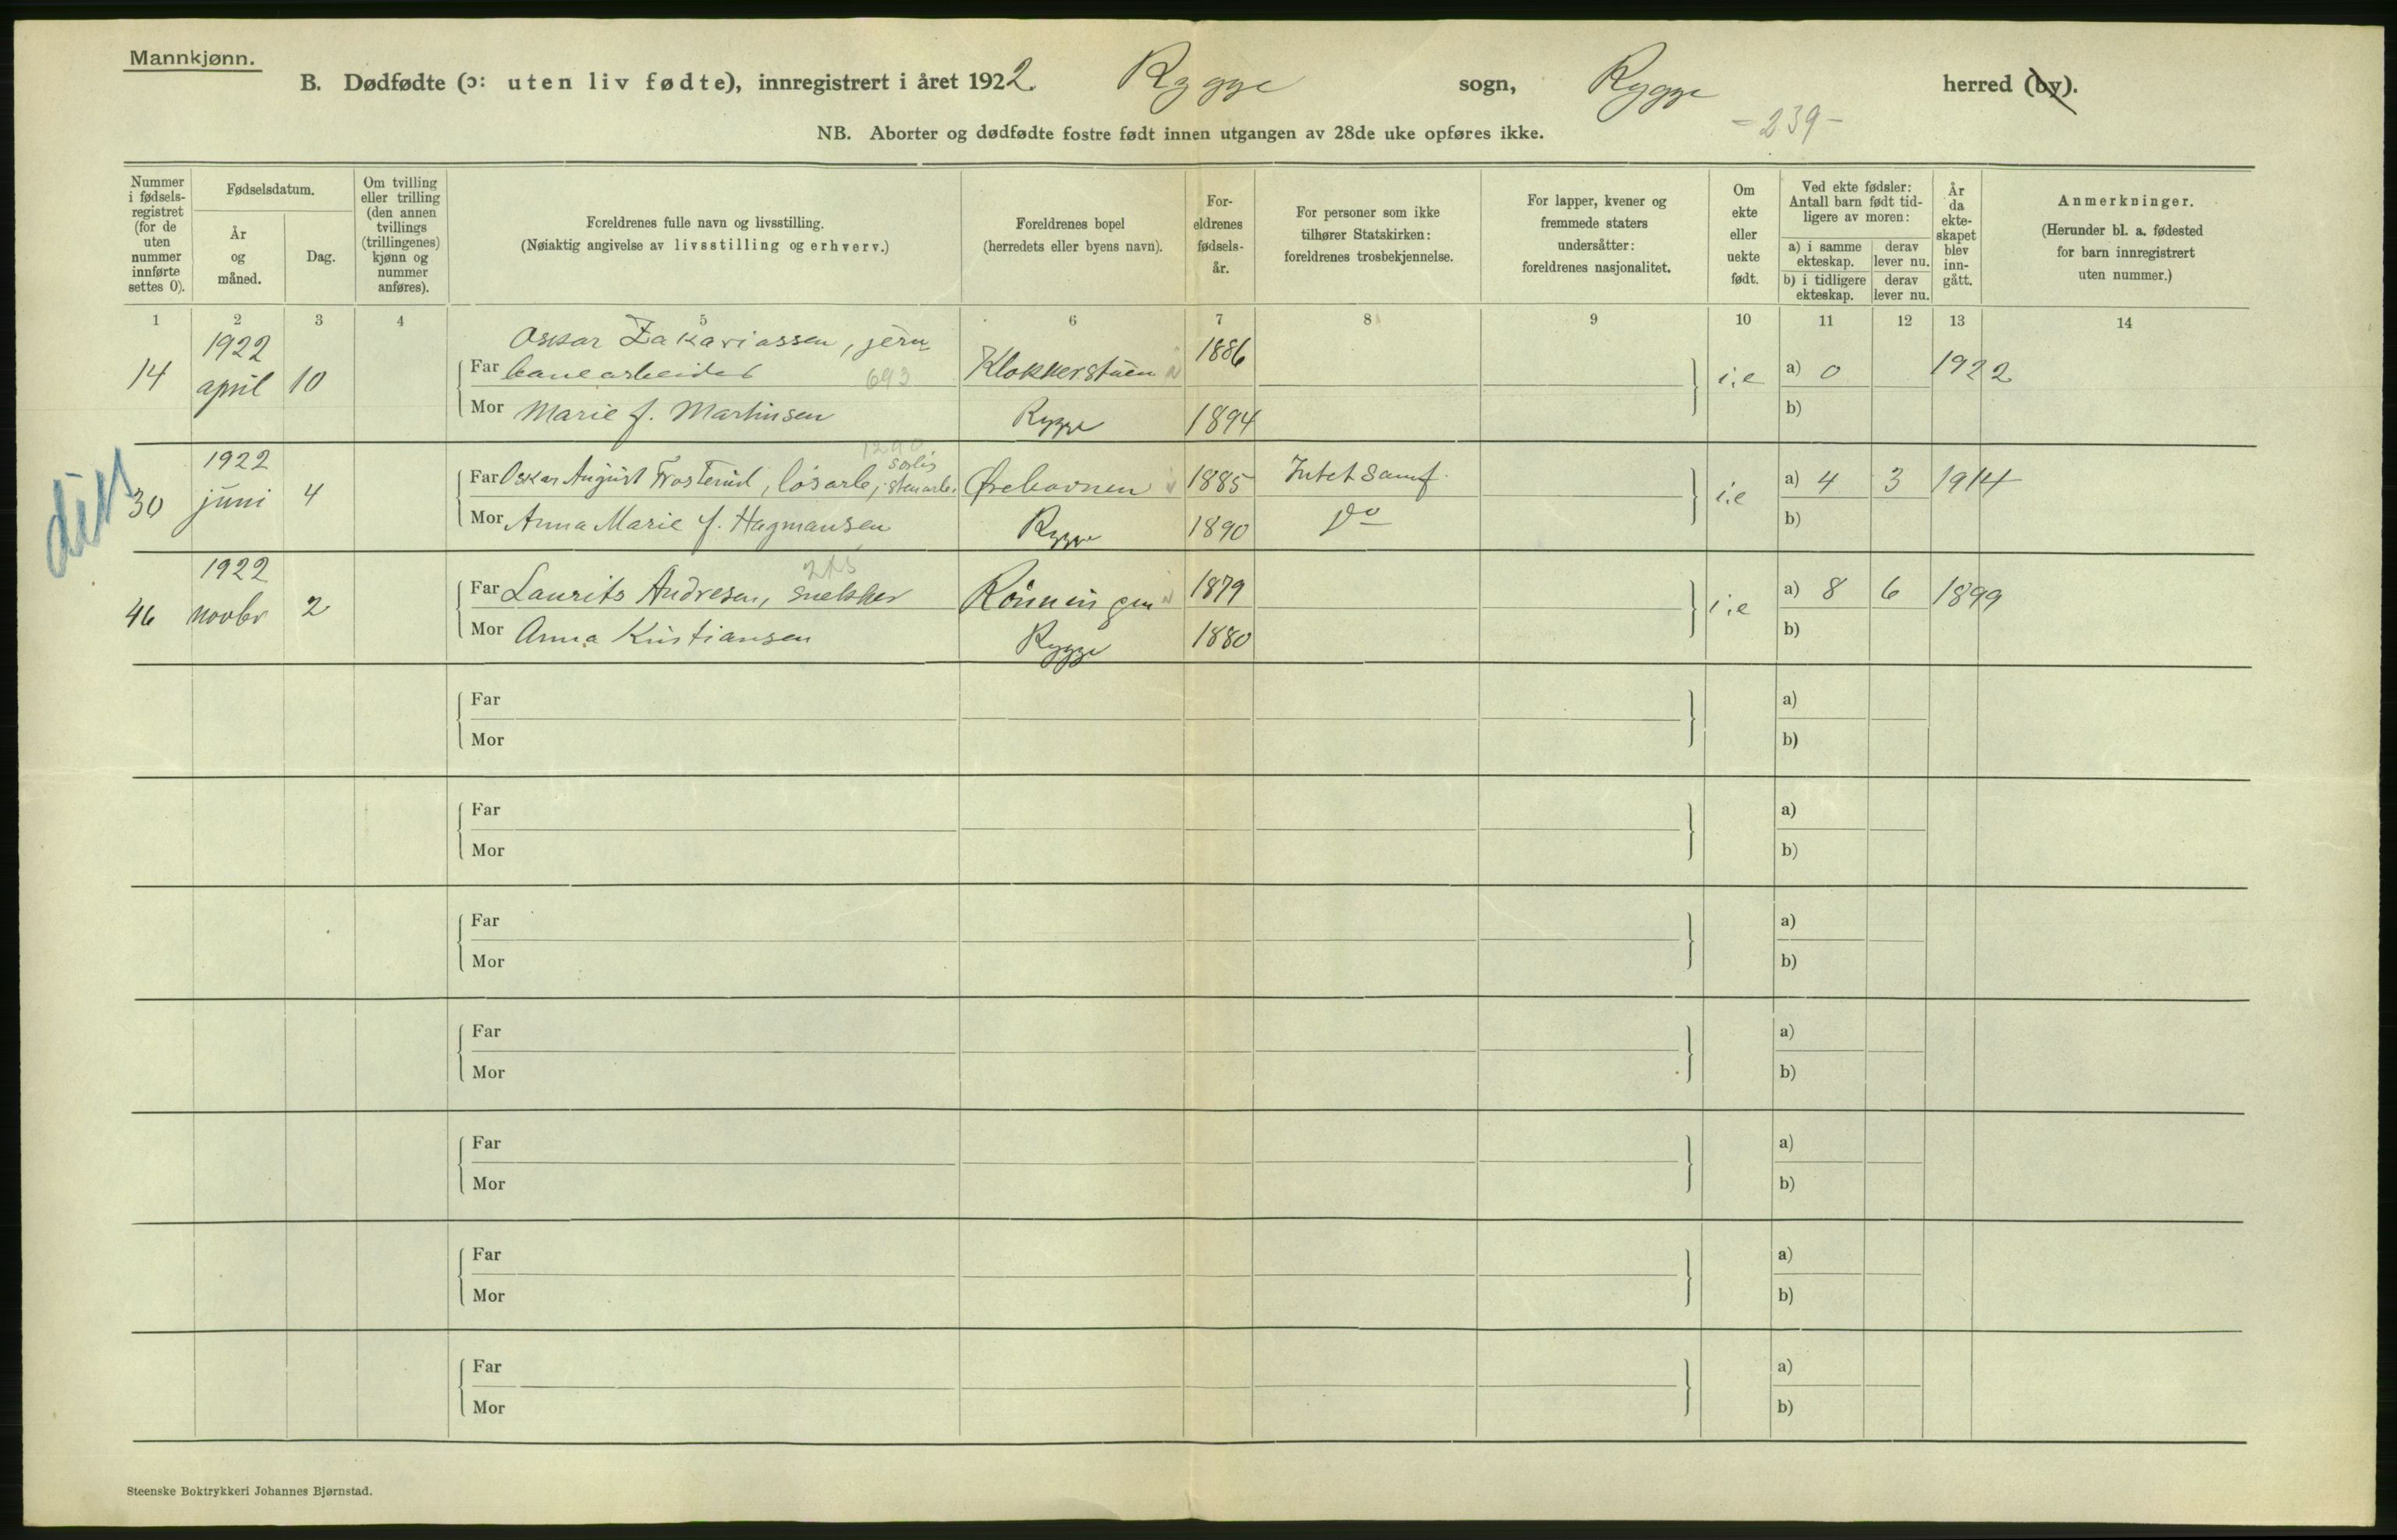 Mannkjønn.
B. Dødfødte (ɔ: uten liv fødte), innregistrert i året 1922. Rygge sogn, Rygge herred (by).
NB. Aborter og dødfødte fostre født innen utgangen av 28de uke opføres ikke.
- 239 -
Nummer i fødsels- registret (for de uten nummer innførte settes 0).
Fødselsdatum.
År og måned.
Dag.
Om tvilling eller trilling (den annen tvillings (trillingenes) kjønn og nummer anføres).
Foreldrenes fulle navn og livsstilling.
(Nøiaktig angivelse av livsstilling og erhverv.)
Foreldrenes bopel
(herredets eller byens navn).
For- eldrenes fødsels- år.
For personer som ikke tilhører Statskirken: foreldrenes trosbekjennelse.
For lapper, kvener og fremmede staters undersåtter: foreldrenes nasjonalitet.
Om ekte eller uekte født.
Ved ekte fødsler: Antall barn født tid- ligere av moren:
a) i samme ekteskap.
derav lever nu.
b) i tidligere ekteskap.
derav lever nu.
År da ekte- skapet blev inn- gått.
Anmerkninger.
(Herunder bl. a. fødested for barn innregistrert uten nummer.)
1 2 3 4 5 6 7 8 9 10 11 12 13 14
1922 Oskar Zakariassen, jern
14 april 10 Far banearbeider 693 Klokkerstuen 1886 i.e a) 0 1922
Mor Marie f. Martinsen Rygge 1894 b)
1290
1922
30 juni 4 Far Oskar August Frosterud, løsarb., stenarb. 1885 Intet samf. i.e a) 4 3 1914
Mor Anna Marie f. Hagmansen Rygge 1890 Do b)
1922
46 novbr 2 Far Laurits Andresen, snekker Rønningen 1879 i.e a) 8 6 1899
Mor Anna Kristiansen Rygge 1880 b)
Far a)
Mor b)
Far a)
Mor b)
Far a)
Mor b)
Far a)
Mor b)
Far a)
Mor b)
Far a)
Mor b)
Far a)
Mor b)
Steenske Boktrykkeri Johannes Bjørnstad.